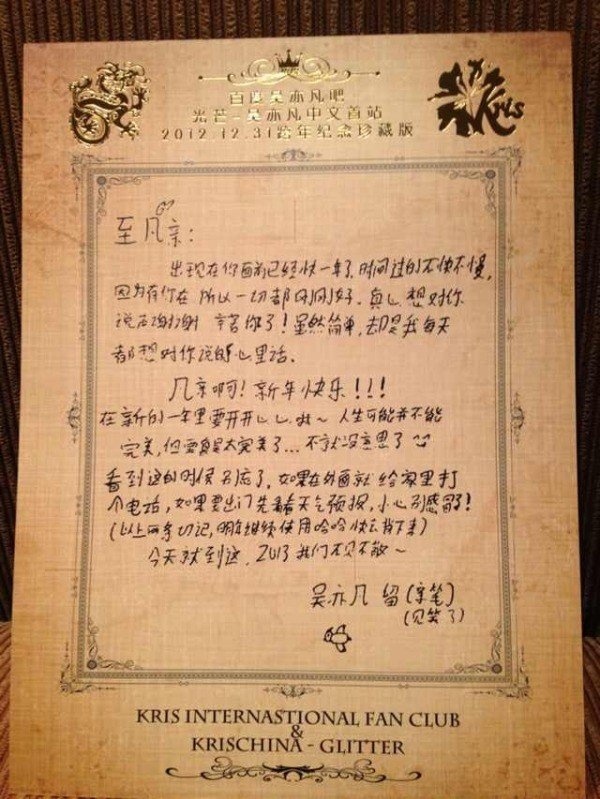 百度吴亦凡吧
光芒-吴亦凡中文首站
2012.12.31跨年纪念珍藏版
Kris
至凡亲:
出现在你面前已经快一年了,时间过的不快不慢,
因为有你在 所以一切都刚刚好. 真心想对你
说声谢谢 辛苦你了! 虽然简单, 却是我每天
都想对你说的心里话.
凡亲啊! 新年快乐!!!
在新的一年里要开开心心哦~ 人生可能并不能
完美, 但要真是太完美了... 不就没意思了
看到这的时候 别忘了, 如果在外面就 给家里打
个电话, 如果要出门先看看天气预报, 小心别感冒了!
(以上两条切记, 明年继续使用哈哈 快点背下来)
今天就到这, 2013 我们不见不散~
吴亦凡 留 (亲笔)
(见笑了)
KRIS INTERNASTIONAL FAN CLUB
&
KRISCHINA - GLITTER